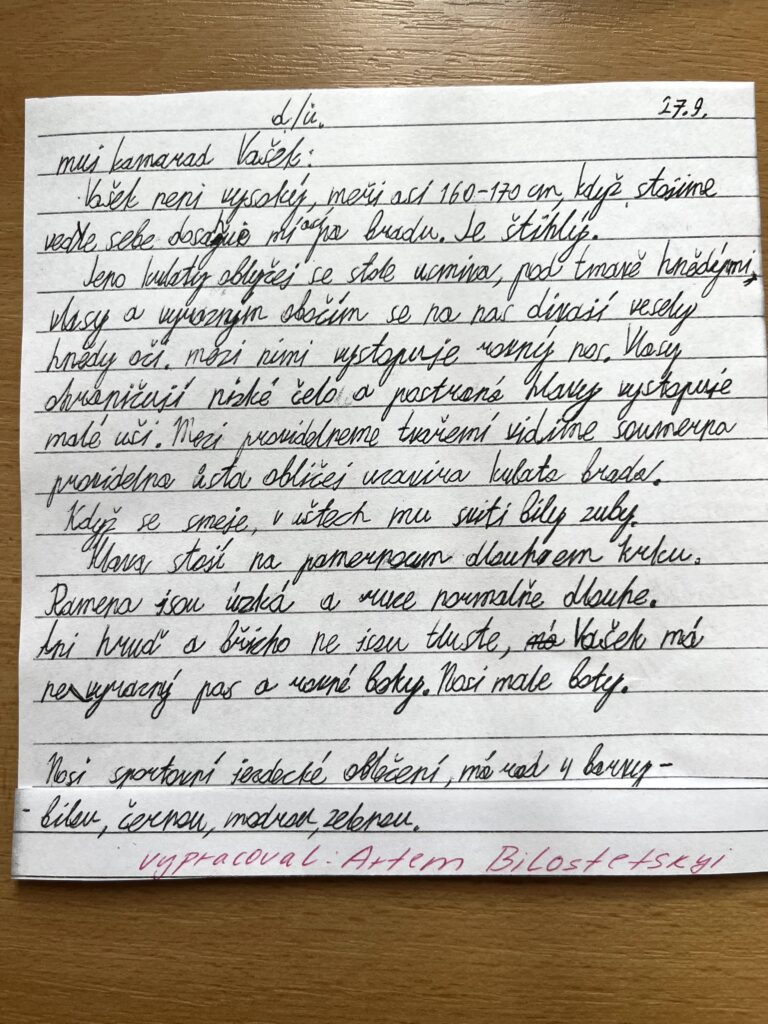 d/ú. 27.9.
muj kamarad Vašek:
Vašek neni vysoký, meři asi 160-170 cm, když stojime
vedle sebe dosahuje mí asi po bradu. Je štíhlý.
Jeho kulatý oblyčej se stole usmiva, pod tmavě hnědými
vlasy a vyrazným obočím se na nas dívají vesely
hnědy oči. mezi nimi vystopuje rovný nos. Vlasy
ohraničují nizké čelo a postrané hlavy vystopuje
malé uši. Mezi providelneme tvařemí vidime soumerna
providelna ústa obličej uzavira kulata brada.
Když se smeje, v ústech mu sviti bily zuby.
Hlava stojí na pomernoum dlouhoem krku.
Ramena jsou úzká a ruce normalňe dlouhe.
Ani hruď a břicho ne jsou tluste, Vašek má
nevyrazný pas a rovné boky. Nosi male boty.
Nosi sportovní jezdecké oblečení, má rad 4 barvy-
- bilou, černou, modrou, zelenou.
vypracoval: Artem Bilostetskyi